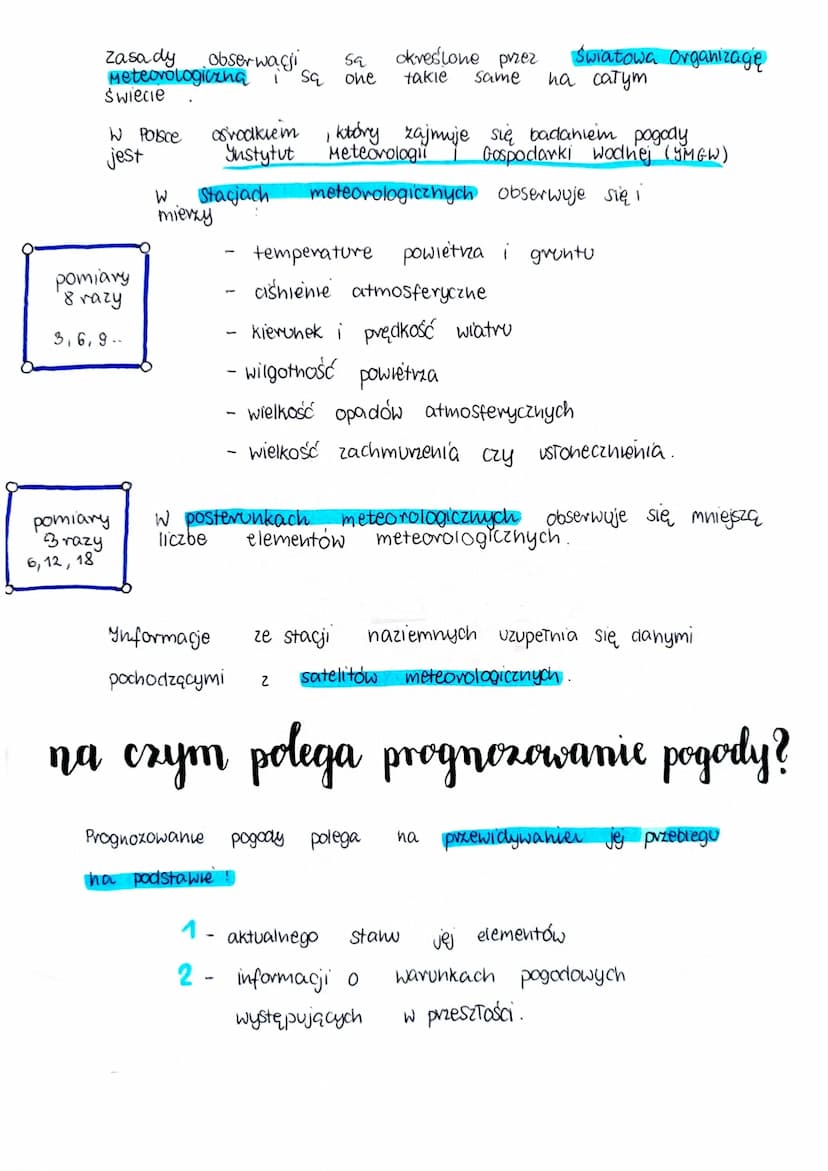 Zasady obserwacji są określone przez Światową Organizagę
Meteorologiczną i są one takie same na całym
świecie .
W Polsce ośrodkiem , który zajmuje się badaniem pogody
jest Instytut Meteorologii i Gospodarki Wodnej (IMGW)
W stacjach meteorologicznych obserwuje się i
mierzy :
- temperature powietrza i gruntu
- ciśnienie atmosferyczne
- kierunek i prędkość wiatru
- wilgotność powietrza
- wielkość opadów atmosferycznych
- wielkość zachmurzenia czy usłonecznienia.
pomiary
8 razy
3, 6, 9..
W posterunkach meteorologicznych obserwuje się mniejszą
liczbe elementów meteorologicznych.
pomiary
3 razy
6, 12, 18
Informacje ze stacji naziemnych uzupełnia się danymi
pochodzącymi z satelitów meteorologicznych.
na czym polega prognozowanie pogody?
Prognozowanie pogody polega na przewidywaniu jej przebiegu
na podstawie :
1 - aktualnego stanu jej elementów
2 - informacji o warunkach pogodowych
występujących w przeszłości.